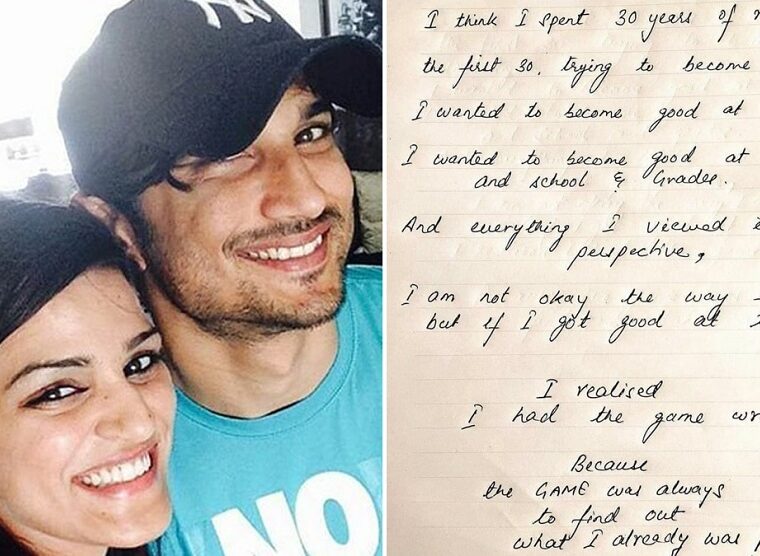 NY
NO
I think I spent 30 years of
the first 30, trying to become
I wanted to become good at
I wanted to become good at
and school & Grades.
And everything I viewed
perspective,
I am not okay the way
but if I got good at
I realised
I had the game
Because
the GAME was always
to find out
what I already was